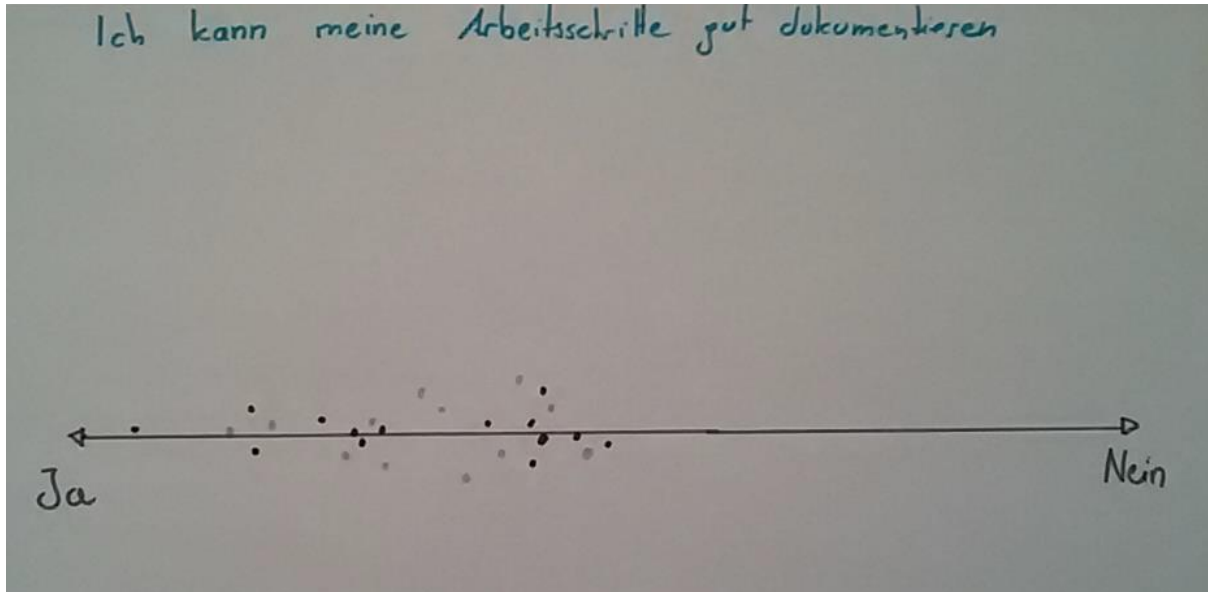 Ich kann meine Arbeitsschritte gut dokumentieren
Ja
Nein